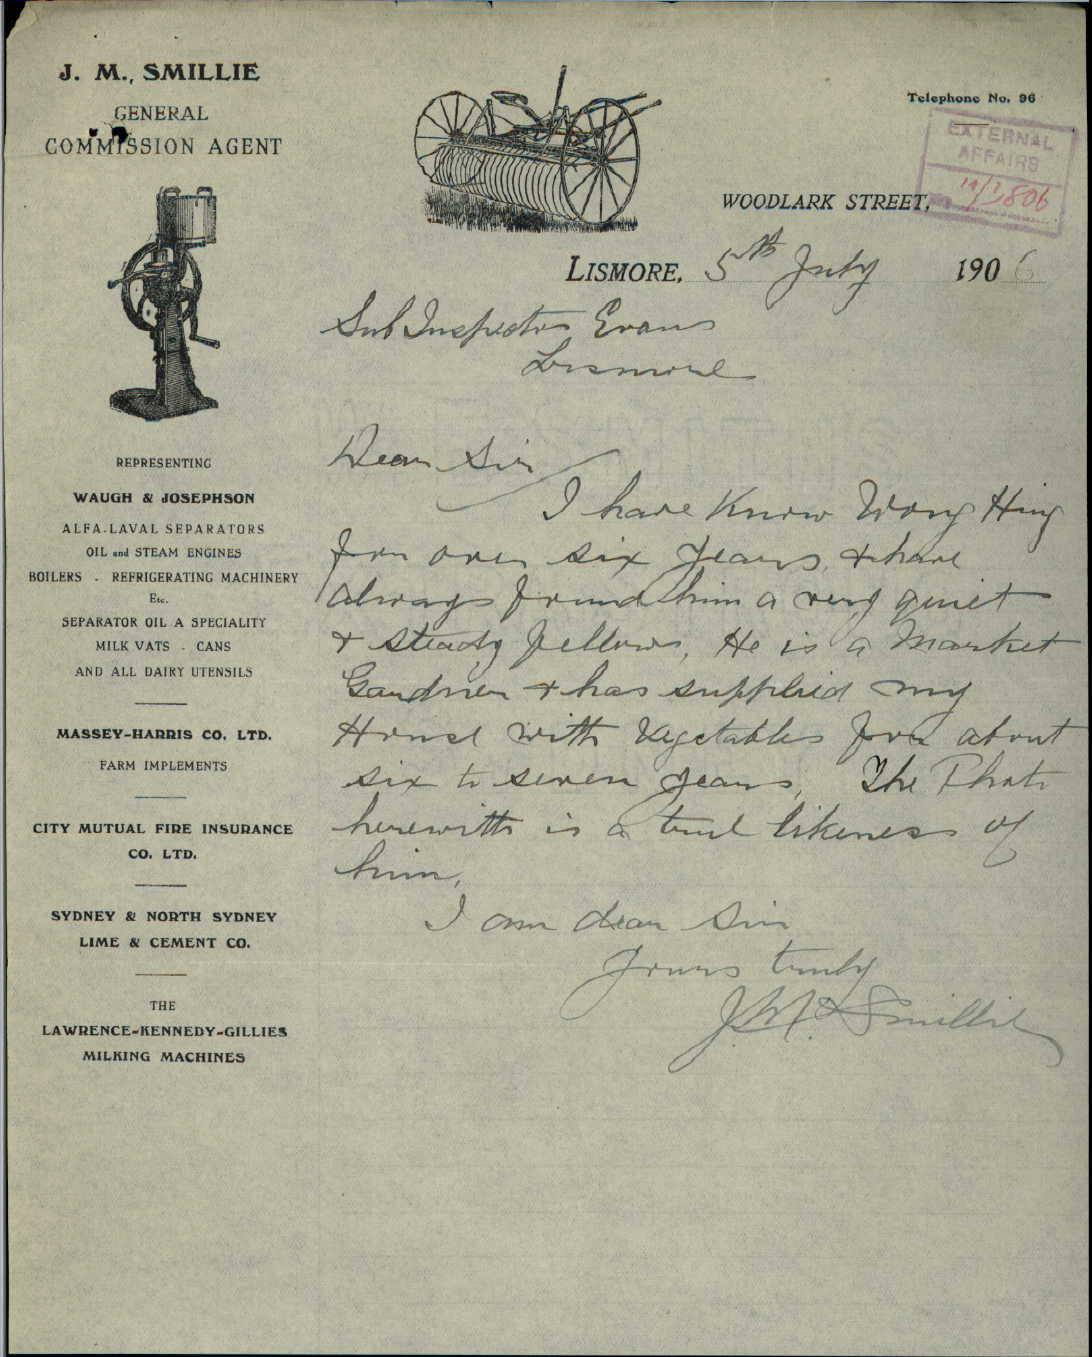 J. M., SMILLIE
GENERAL
COMMISSION AGENT
Telephone No. 96
EXTERNAL
AFFAIRS
WOODLARK STREET,
LISMORE, 5th July 1906
Sub Inspector Evans
Lismore
Dear Sir
I have Know Wong Hing
for over six years, & have
always found him a very quiet
& steady fellow, He is a Market
Gardner & has supplied my
House with Vegetables for about
six to seven years, The Photo
herewith is a true likeness of
him,
I am dear Sir
Yours truly
J. M. Smillie
REPRESENTING
WAUGH & JOSEPHSON
ALFA-LAVAL SEPARATORS
OIL and STEAM ENGINES
BOILERS - REFRIGERATING MACHINERY
Etc.
SEPARATOR OIL A SPECIALITY
MILK VATS - CANS
AND ALL DAIRY UTENSILS
MASSEY-HARRIS CO. LTD.
FARM IMPLEMENTS
CITY MUTUAL FIRE INSURANCE
CO. LTD.
SYDNEY & NORTH SYDNEY
LIME & CEMENT CO.
THE
LAWRENCE-KENNEDY-GILLIES
MILKING MACHINES